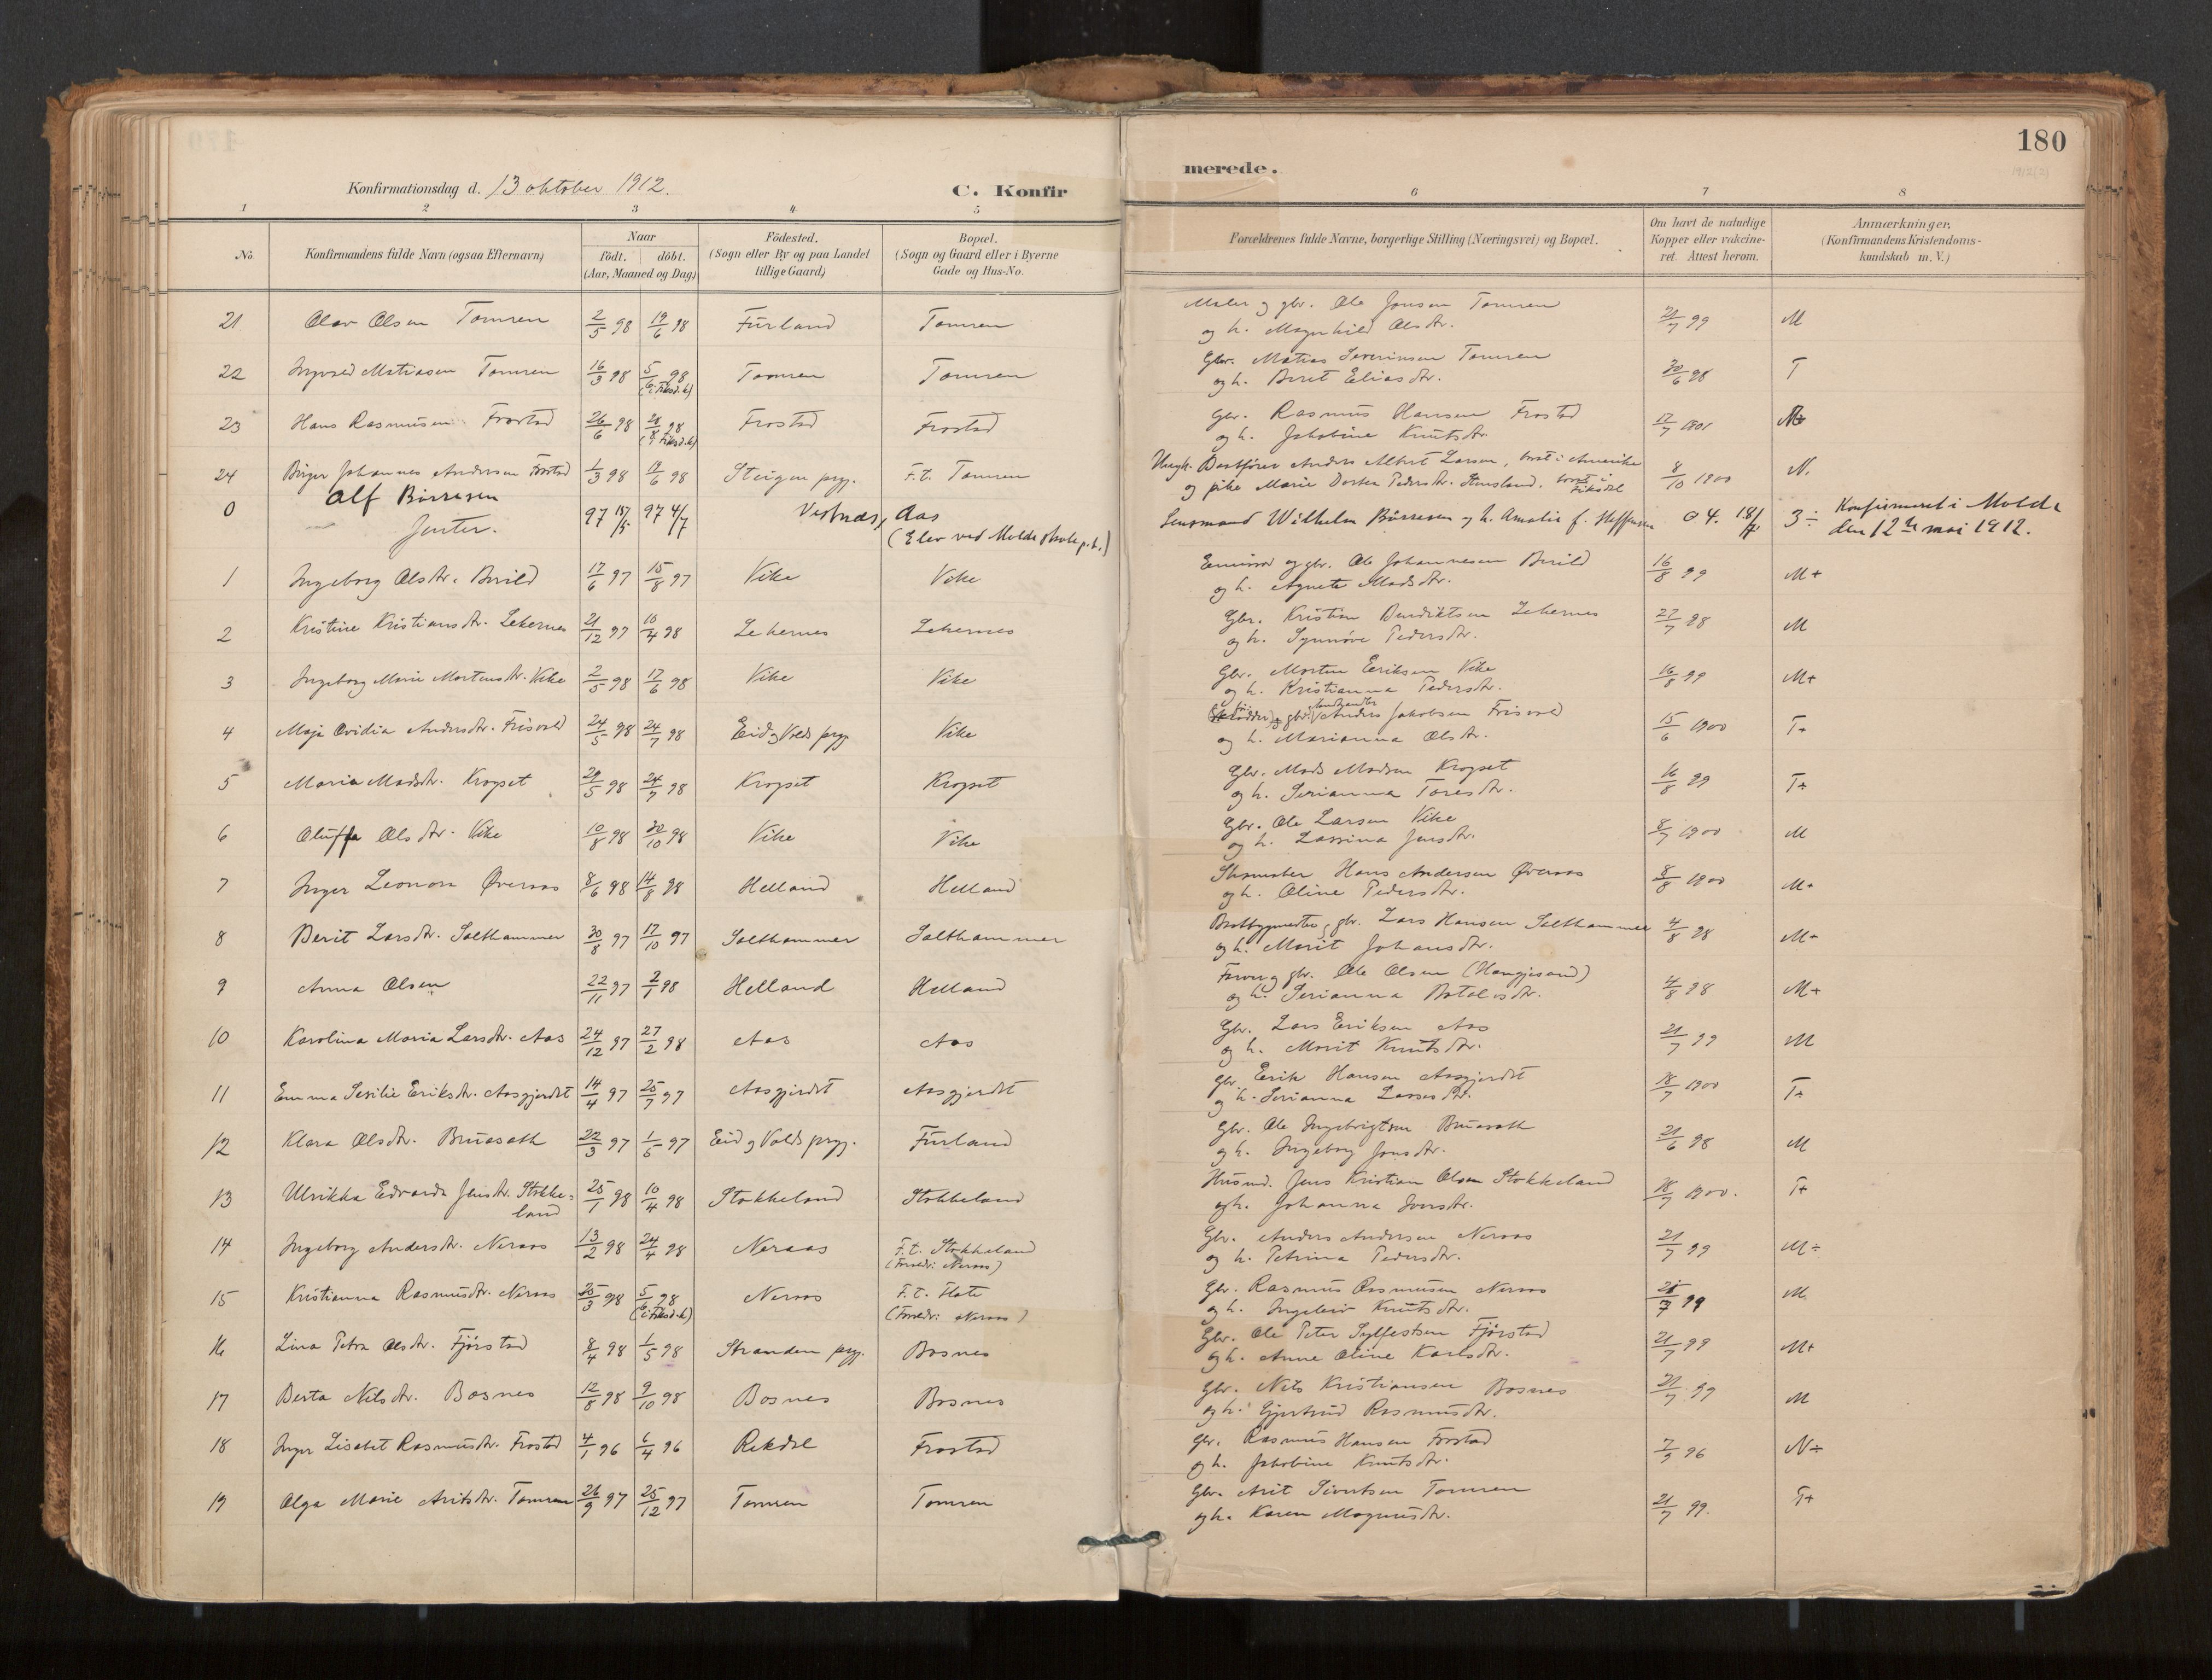 180
Konfirmationsdag d. 13 oktober 1912.
C. Konfirmerede.
1 2 3 4 5 6 7 8
No. Konfirmandens fulde Navn (ogsaa Efternavn) Naar födt. döbt. (Aar, Maaned og Dag) Födested. (Sogn eller By og paa Landet tillige Gaard) Bopæl. (Sogn og Gaard eller i Byerne Gade og Hus-No. Forældrenes fulde Navne, borgerlige Stilling (Næringsvei) og Bopæl. Om havt de naturlige Kopper eller vakcineret. Attest herom. Anmærkninger. (Konfirmandens Kristendomskundskab m. V.)
21 Olav Olsen Tomren 2/5 98 19/6 98 Furland Tomren Maler og gbr. Ole Jonsen Tomren og h. Magnhild Olsdtr. 21/7 99 M
22 Ingvald Matiasen Tomren 16/3 98 5/6 98 (i Fiksd. k) Tomren Tomren Gbr. Matias Severinsen Tomren og h. Beret Eliasdtr. 30/6 98 T
23 Hans Rasmusen Frostad 26/6 98 28/8 98 (i Fiksd. k) Frostad Frostad Gbr. Rasmus Hansen Frostad og h. Jakobine Knutsdtr. 17/7 1901
24 Birger Johannes Andersen Frostad 1/3 98 19/6 98 Steigen prg. F. t. Tomren Ungk. Anders Albert Larsen, bosat i Amerika og pike Marie Dortea Pedersdtr. bosat i Fiksdal 8/10 1900 N.
0 Alf Börresen 97 15/5 97 4/7 Vestnæs, Aas (Elev ved Molde skole p. t.) Lensmand Wilhelm Börresen og h. Amalie f. 04. 18/7 3÷ Konfirmeret i Molde den 12te mai 1912.
Jenter.
1 Ingeborg Olsdtr. Birild 17/6 97 15/8 97 Vike Vike gbr. Ole Johannesen Birild og h. Agnete Madsdtr. 16/8 99 M+
2 Kristine Kristiansdtr. Lekernes 21/12 97 10/4 98 Lekernes Lekernes Gbr. Kristian Bendiktsen Lekernes og h. Synnöve Pedersdtr. 27/7 98 M
3 Ingeborg Marie Mortensdtr. Vike 2/5 98 17/6 98 Vike Vike Gbr. Morten Eriksen Vike og h. Kristianna Pedersdtr. 16/8 99 M+
4 Maja Ovidia Andersdtr. Frisvold 24/5 98 24/7 98 Eid og Volds prg. Vike gbr. Landhandler Anders Jakobsen Frisvold og h. Marianna Olsdtr. 15/6 1900 T+
5 Maria Madsdtr. Kropset 29/5 98 24/7 98 Kropset Kropset Gbr. Mads Madsen Kropset og h. Serianna Toresdtr. 16/8 99 T÷
6 Oluffa Olsdtr. Vike 10/8 98 30/10 98 Vike Vike Gbr. Ole Larsen Vike og h. Lassina Jensdtr. 8/7 1900 M
7 Inger Leonora Øveraas 8/6 98 14/8 98 Helland Helland Skomaker Hans Andersen Øveraas og h. Oline Pedersdtr. 8/8 1900 M+
8 Berit Larsdtr. Salthammer 30/8 97 17/10 97 Salthammer Salthammer Baatbygmester og gbr. Lars Hansen Salthammer og h. Marit Johansdtr. 4/8 98 M÷
9 Anna Olsen 22/11 97 2/1 98 Helland Helland Farver og gbr. Ole Olsen (Haugjesund) og h. Serianna Botolvsdtr. 4/8 98 M+
10 Karolina Maria Larsdtr. Aas 24/12 97 27/2 98 Aas Aas Gbr. Lars Eriksen Aas og h. Marit Knutsdtr. 21/7 99 M
11 Emma Sesilie Eriksdtr. Aasgjerdet 14/4 97 25/7 97 Aasgjerdet Aasgjerdet Gbr. Erik Hansen Aasgjerdet og h. Serianna Lassesdtr. 18/7 1900 T÷
12 Klara Olsdtr. Bruaseth 22/3 97 1/6 97 Eid og Volds prg. Furland Gbr. Ole Ingebrigtsen Bruaseth og h. Ingeborg Jonsdtr. 21/6 98 M
13 Ulrikka Edvarda Jensdtr. Stokkeland 25/1 98 10/4 98 Stokkeland Stokkeland Husmd. Jens Kristian Olsen Stokkeland og h. Johanna Iversdtr. 18/7 1900. T+
14 Ingeborg Andersdtr. Neraas 13/2 98 24/4 98 Neraas F. t. Stokkeland (Foreldr: Neraas) Gbr. Anders Andersen Neraas og h. Petrina Pedersdtr. 21/7 99 M÷
15 Kristianna Rasmusdtr. Neraas 25/3 98 5/6 98 (i Fiksd. k) Neraas F. t. Flate (Foreldr: Neraas) Gbr. Rasmus Rasmusen Neraas og h. Ingeleiv Knutsdtr. 99 M
16 Lina Petra Olsdtr. Fjörstad 8/4 98 1/5 98 Stranden prg. Bosnes Gbr. Ole Peter Sylfestsen Fjörstad og h. Anne Oline Karlsdtr. 21/7 99 M+
17 Berta Nilsdtr. Bosnes 12/8 98 9/10 98 Bosnes Bosnes Gbr. Nils Kristiansen Bosnes og h. Gjertrud Rasmusdtr. 21/7 99 M
18 Inger Lisabet Rasmusdtr. Frostad 4/1 96 6/4 96 Rekdal Frostad Gbr. Rasmus Hansen Frostad og h. Jakobine Knutsdtr. 7/9 96 N÷
19 Olga Marie Aritsdtr. Tomren 26/9 97 25/12 97 Tomren Tomren Gbr. Arit Sivertsen Tomren og h. Karen Magnusdtr. 21/7 99. T+